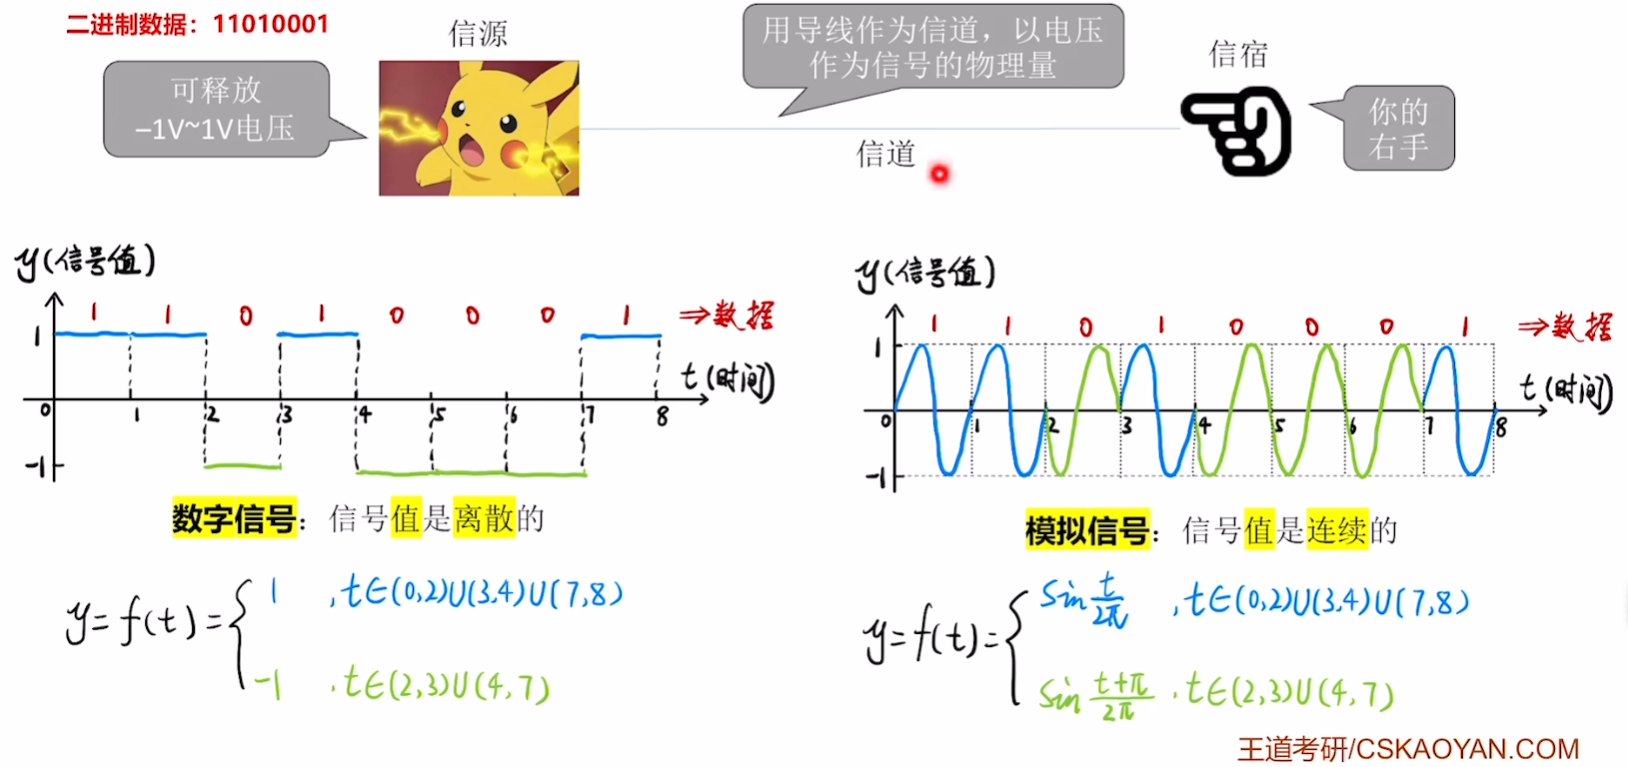 二进制数据：11010001
信源
用导线作为信道，以电压
作为信号的物理量
信宿
可释放
–1V~1V电压
你的
右手
信道
y(信号值)
1 1 0 1 0 0 0 1 ⇒数据
1
t(时间)
0 1 2 3 4 5 6 7 8
-1
数字信号：信号值是离散的
y=f(t)={
1 ,t∈(0,2)∪(3,4)∪(7,8)
-1 ,t∈(2,3)∪(4,7)
y(信号值)
1 1 0 1 0 0 0 1 ⇒数据
1
t(时间)
0 1 2 3 4 5 6 7 8
-1
模拟信号：信号值是连续的
y=f(t)={
sin t/2π ,t∈(0,2)∪(3,4)∪(7,8)
sin t+π/2π ,t∈(2,3)∪(4,7)
王道考研/CSKAOYAN.COM